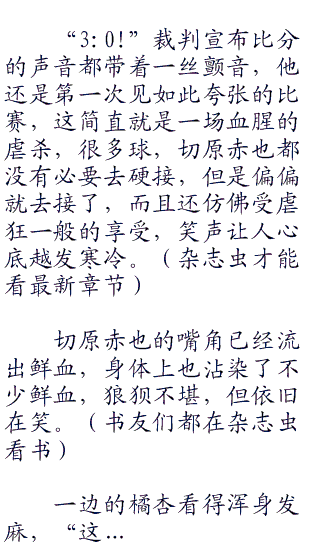 “3:0!”裁判宣布比分
的声音都带着一丝颤音，他
还是第一次见如此夸张的比
赛，这简直就是一场血腥的
虐杀，很多球，切原赤也都
没有必要去硬接，但是偏偏
就去接了，而且还仿佛受虐
狂一般的享受，笑声让人心
底越发寒冷。（杂志虫才能
看最新章节）
切原赤也的嘴角已经流
出鲜血，身体上也沾染了不
少鲜血，狼狈不堪，但依旧
在笑。（书友们都在杂志虫
看书）
一边的橘杏看得浑身发
麻，“这...